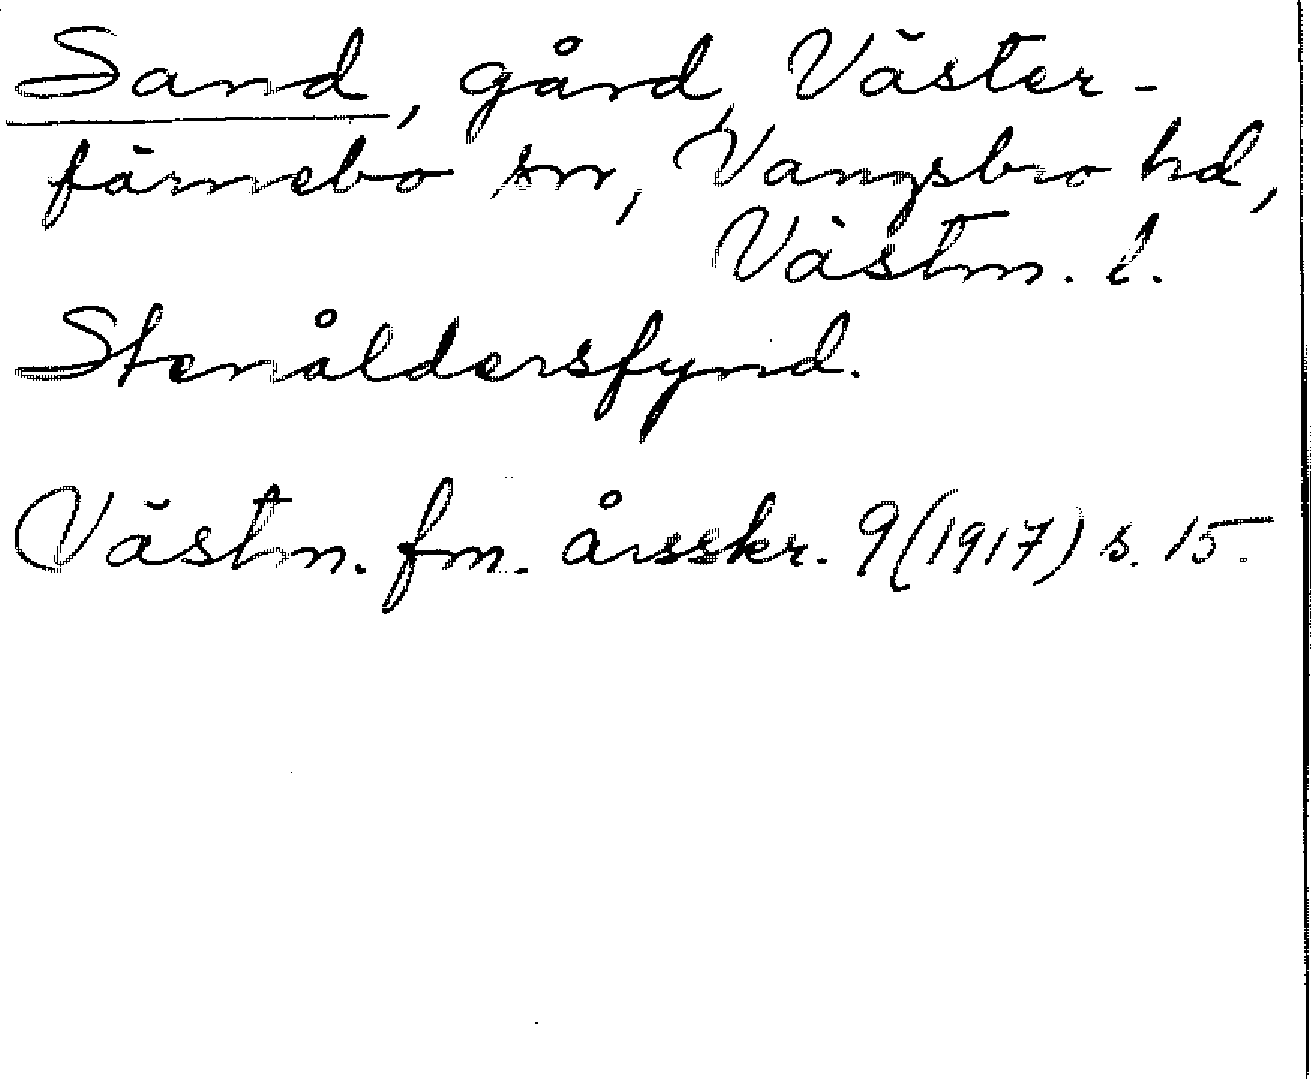 Sand, gård, Väster-
färnebo sn, Vangsbro hd,
Västm. l.
Stenåldersfynd.
Västm. fm. årsskr. 9 (1917) s. 15.